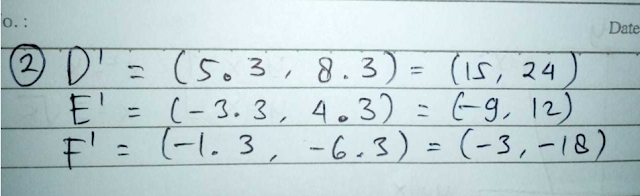 o.:
Date
② D' = (5.3, 8.3) = (15, 24)
E' = (-3.3, 4.3) = (-9, 12)
F' = (-1.3, -6.3) = (-3, -18)